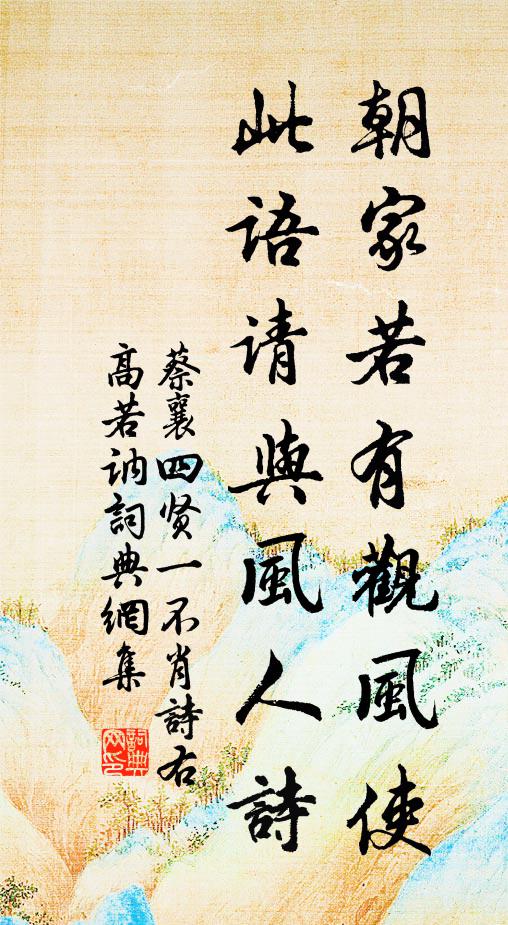 朝家若有觀風使
此語请與風人詩
蔡襄四贤一不肖詩右
高若讷詞典網集
詞典網印